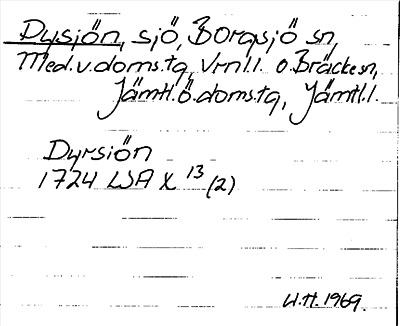 Dysjön, sjö, Borgsjö sn,
Med.v.doms.tg, Vrnl.l. o.Bräcke sn,
Jämtl.ö.doms.tg, Jämtl.l.
Dyrsiön
1724 LSA X 13 (2)
W.H. 1969.